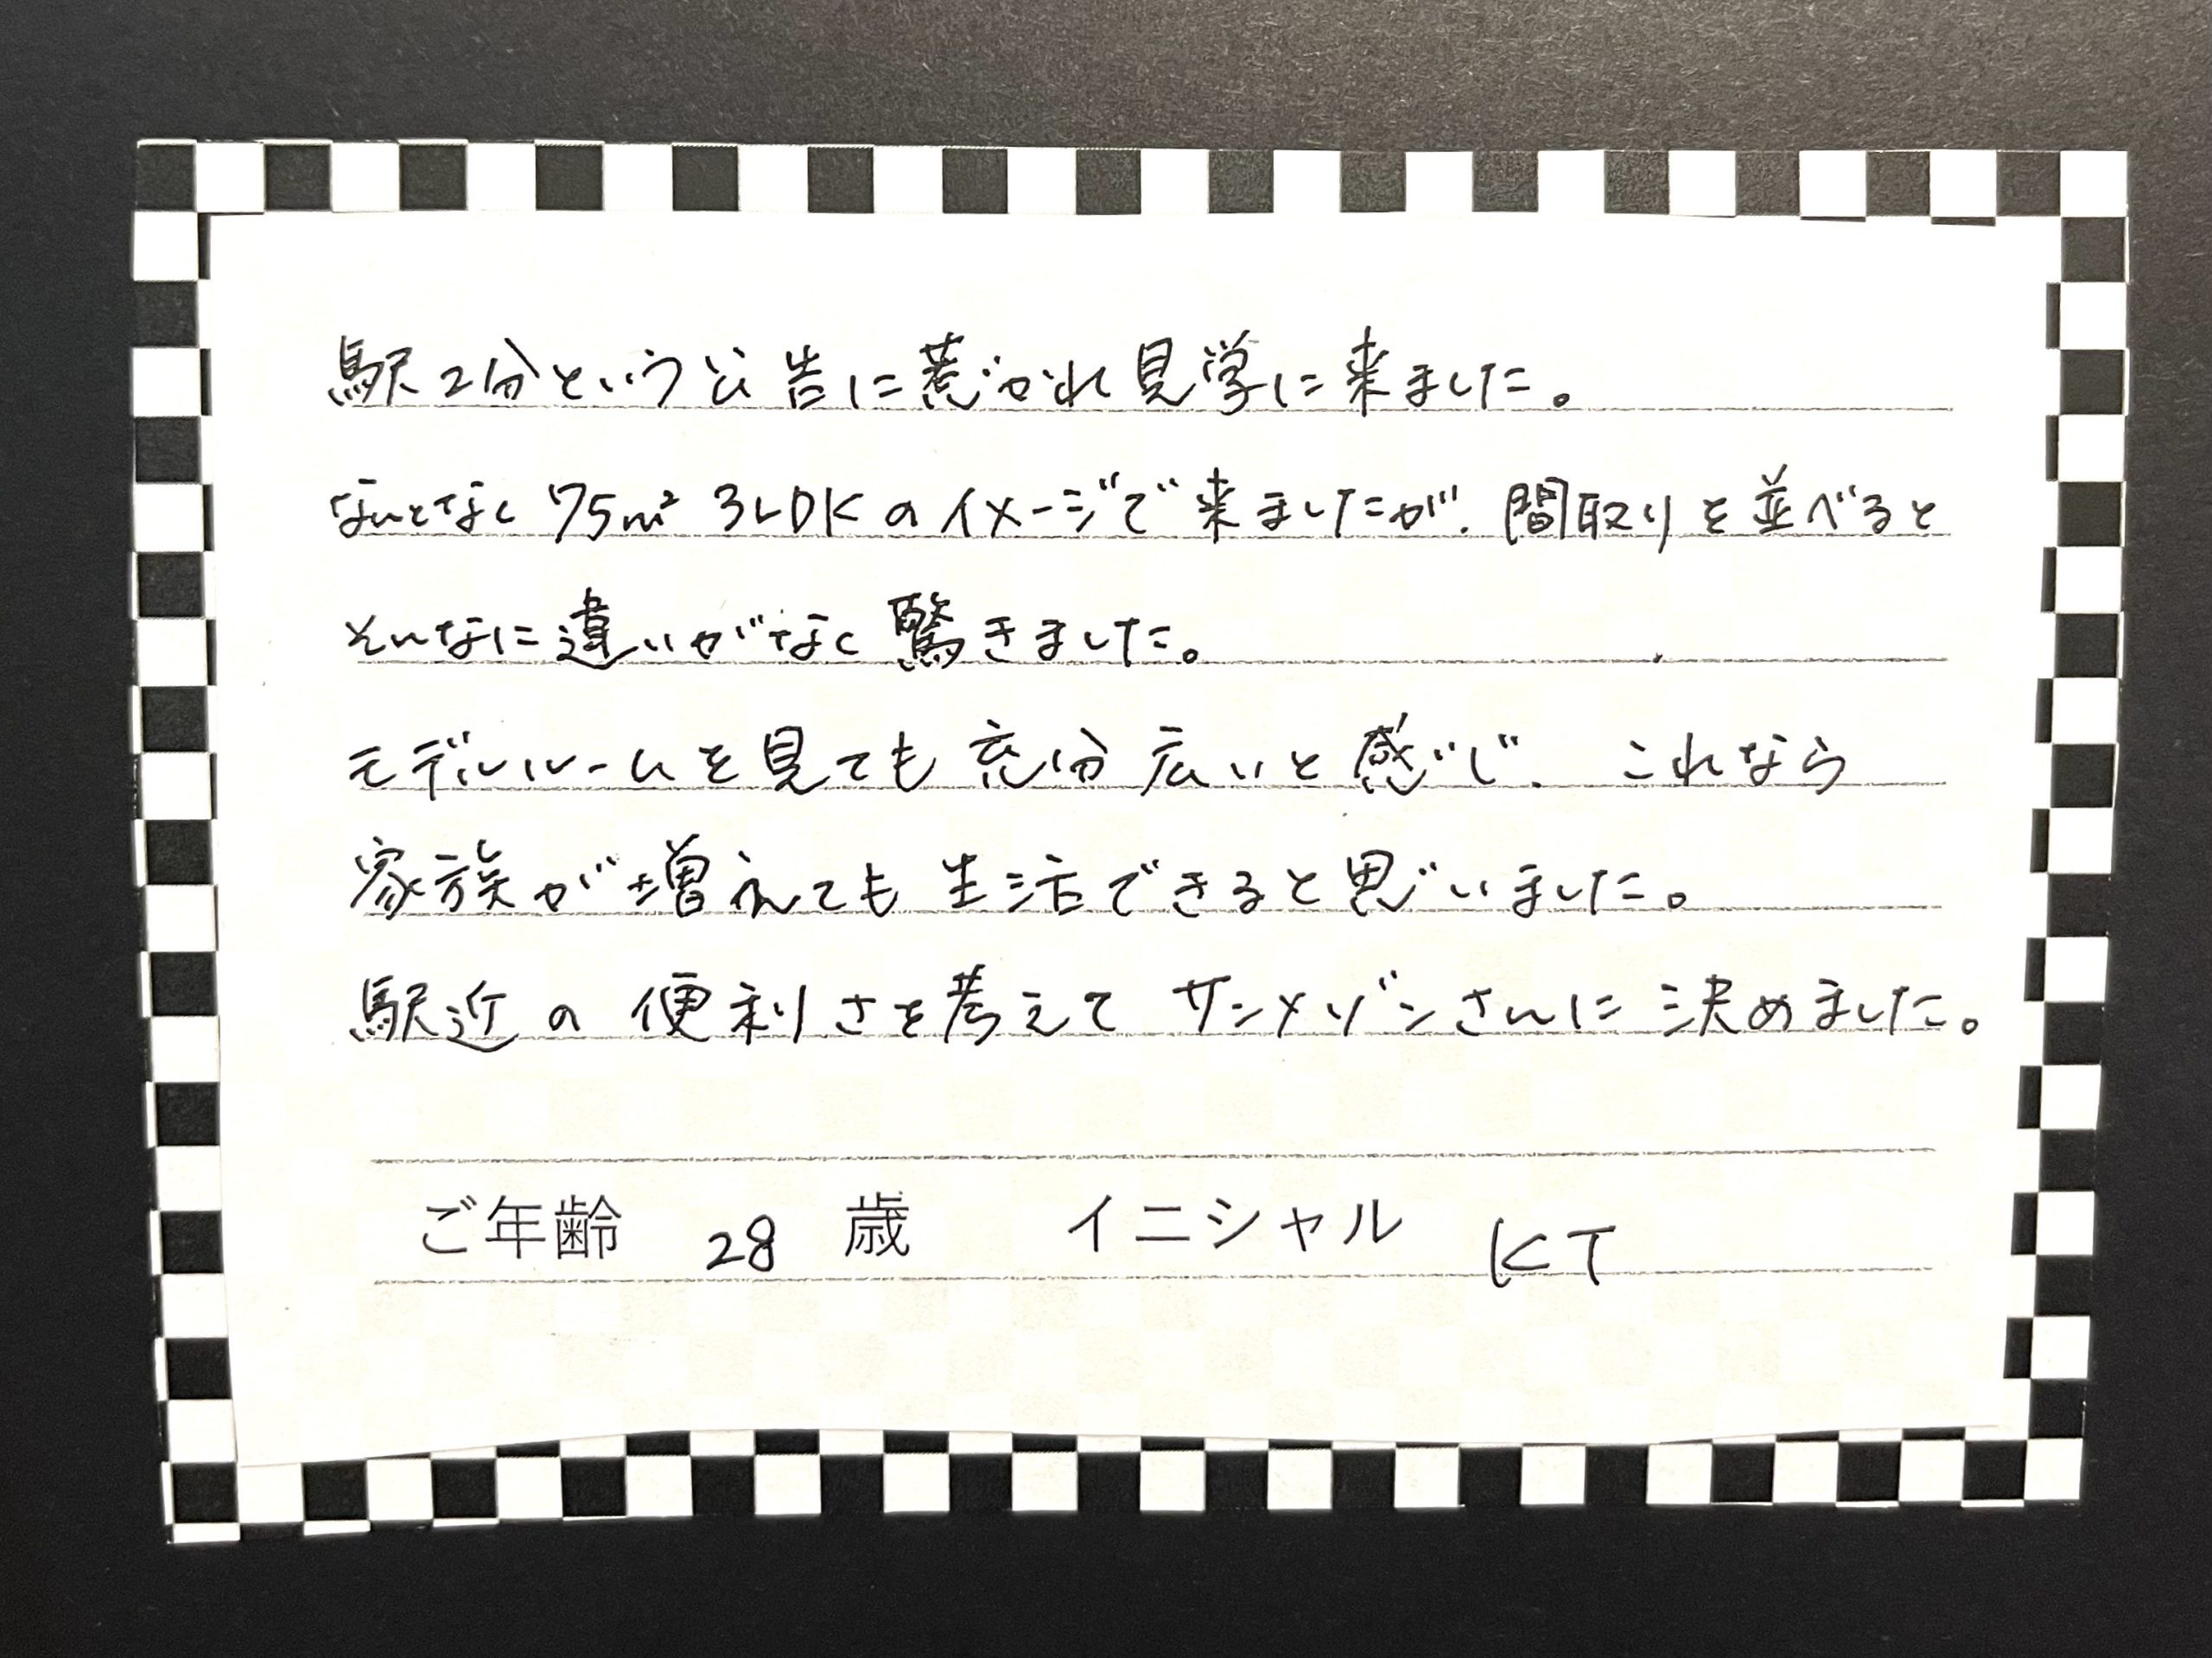 駅2分という公告に惹かれ見学に来ました。
なんとなく75㎡ 3LDKのイメージで来ましたが、間取りを並べると
そんなに違いがなく驚きました。
モデルルームを見ても充分広いと感じ、これなら
家族が増えても生活できると思いました。
駅近の便利さを考えてサンメゾンさんに決めました。
ご年齢 28 歳 イニシャル KT